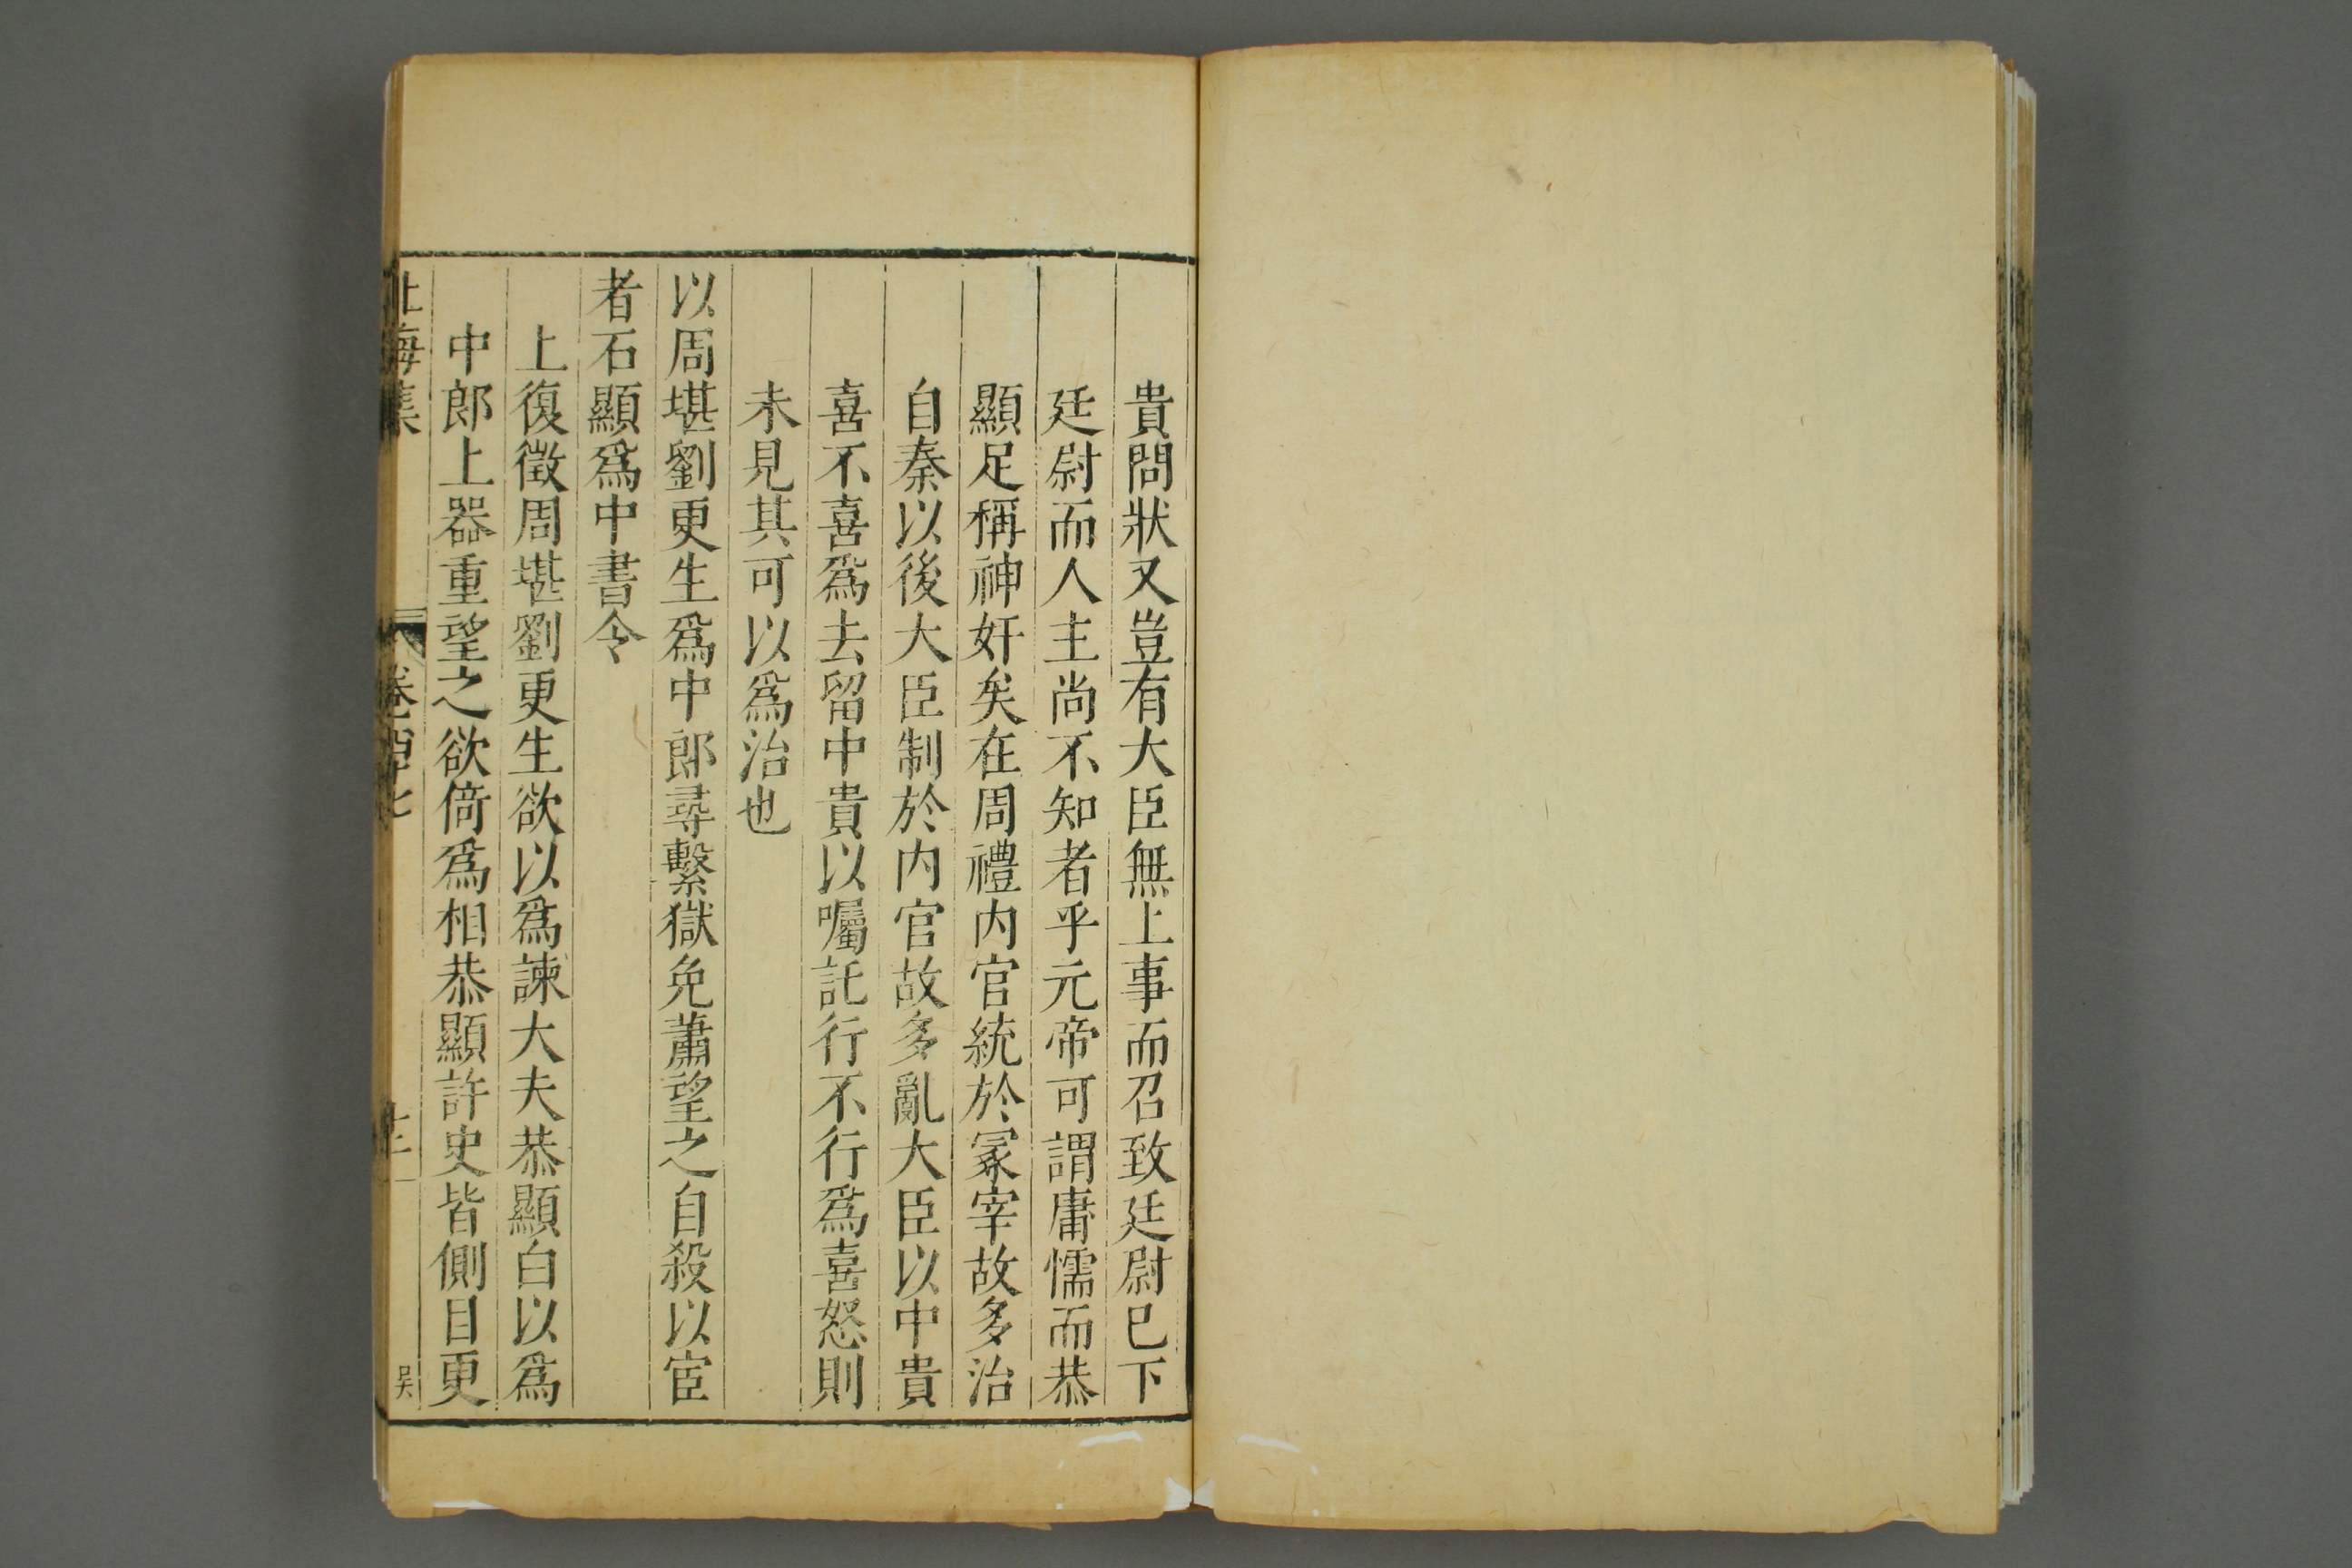 貴問狀又豈有大臣無上事而召致廷尉已下
廷尉而人主尚不知者乎元帝可謂庸懦而恭
顯足稱神奸矣在周禮内官統於冢宰故多治
自秦以後大臣制於内官故多亂大臣以中貴
喜不喜爲去留中貴以囑託行不行爲喜怒則
未見其可以爲治也
以周堪劉更生爲中郎尋繫獄免蕭望之自殺以宦
者石顯爲中書令
上復徵周堪劉更生欲以爲諫大夫恭顯白以爲
中郎上器重望之欲倚爲相恭顯許史皆側目更
海集
卷百十七
吴